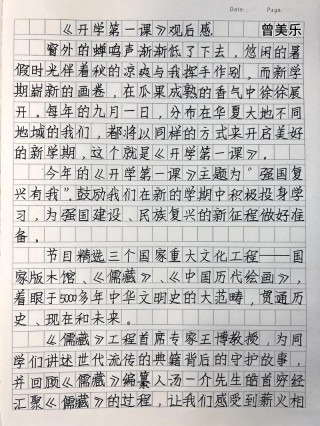 Date.    Page.
《开学第一课》观后感 曾美乐
窗外的蝉鸣声渐渐低了下去，悠闲的暑
假时光伴着秋的凉爽与我挥手作别，而新学
期崭新的画卷，在瓜果成熟的香气中徐徐展
开。每年的九月一日，分布在华夏大地不同
地域的我们，都将以同样的方式来开启美好
的新学期，这个就是《开学第一课》。
今年的《开学第一课》主题为“强国复
兴有我”。鼓励我们在新的学期中积极投身学
习，为强国建设、民族复兴的新征程做好准
备。
节目精选三个国家重大文化工程——国
家版本馆、《儒藏》、《中国历代绘画》，
着眼于5000多年中华文明史的大范畴，贯通历
史、现在和未来。
《儒藏》工程首席专家王博教授，为同
学们讲述世代流传的典籍背后的守护故事，
并回顾《儒藏》编纂人汤一介先生皓首穷经
汇聚《儒藏》的过程，让我们感受到薪火相